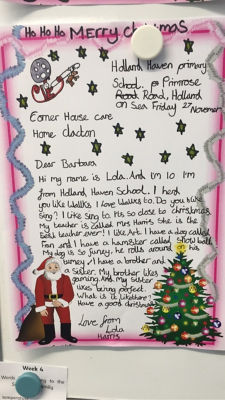 Ho Ho Ho Merry christmas
Holland Haven primary
School. Primrose
Road Road, Holland
on Sea Friday 27 November
Corner House care
Home clacton
Dear Barbara
Hi my name is Lola. And Im 10 Im
from Holland Haven School. I heard
you like Walks I love Walks to. Do you like
Sing? I like Sing to. Its so close to christmas
My teacher is called Mrs Harris she is the
Best teacher ever! I like Art. I have a dog called
Fan and I have a hamster called snow ball
My dog is so funey, he rolls around on his
tumey. I have a brother and
a sister. My brother likes
gaming And my sister
likes being perfect.
What is it like there?
Have a good christmas
Love from
Lola
Harris
Week 4